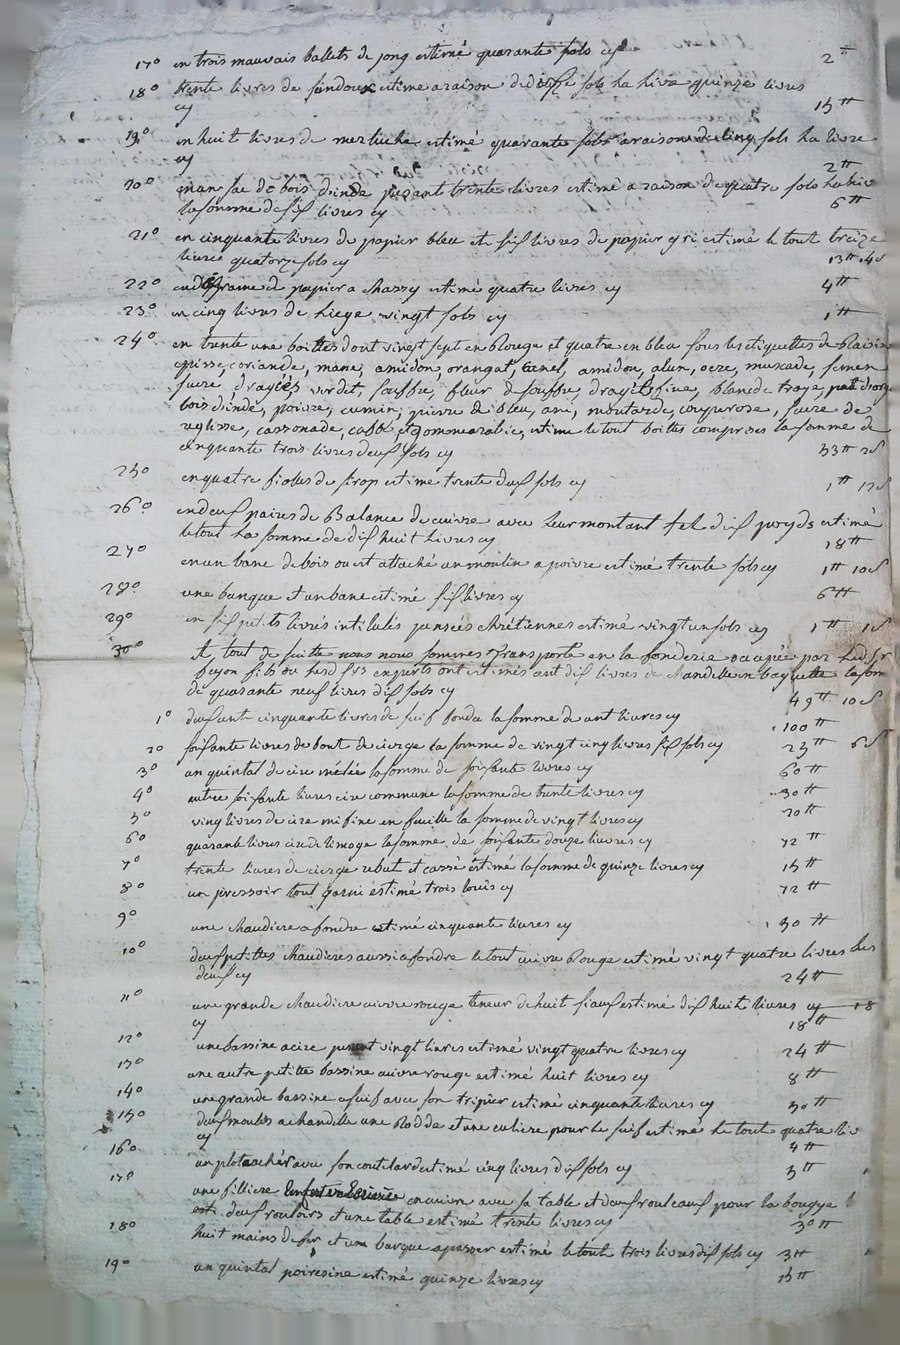 17° en trois mauvais ballets de jong estimé quarante sols cy 2 ₶
18° trente livres de sindoux estime a raison de dix sols la livre quinze livres
cy 15 ₶
19° en huit livres de merluche estimé quarante sols a raison de cinq sols la livre
cy 2 ₶
20° un sac de bois dinde pezant trente livres estimé a raison de quatre sols la livre
la somme de six livres cy 6 ₶
21° en cinquante livres de papier bleu et six livres de papier gri estimé le tout treize
livres quatorze sols cy 13 ₶ 14 s
22° en rame de papier a chassy estimé quatre livres cy 4 ₶
23° en cinq livres de liege vingt sols cy 1 ₶
24° en trente une boittes dont vingt sept en Rouge et quatre en bleu sous les etiquettes de Raisin
episse, coriande, mane, amidon, orangat, canel, amidon, alun, ocre, muscade, semen
sucre dragées, verdet, souffre, fleur de souffre, dragée fine, blanc de troye,
bois dinde, poivre, cumin, pierre de bleu, ani, moutarde, couperose, sucre de
reglisse, cassonade, caffé, et gomme arabic, estime le tout boittes comprises la somme de
cinquante trois livres deux sols cy 53 ₶ 2 s
25° en quatre fiolles de sirop estime trente deux sols cy 1 ₶ 12 s
26° en deux paires de Balance de cuivre avec leur montant poyds estimé
le tout la somme de dix huit Livres cy 18 ₶
27° en un banc de bois ou est attaché un moulin a poivre estimé trente sols cy 1 ₶ 10 s
28° une banque et un banc estimé six livres cy 6 ₶
29° en six petits livres intitulés pensées chrétiennes estimé vingt un sols cy 1 ₶ 1 s
30° et tout de suitte nous nous sommes transporté en la fonderie occupée par led. Sr
fils ou lesd. experts ont estimés cent dix livres de chandelle en baguette la som
de quarante neuf livres dix sols cy 49 ₶ 10 s
1° deux cent cinquante livres de suif fondu la somme de cent livres cy 100 ₶
2° soixante livres de bout de cierge la somme de vingt cinq livres six sols cy 25 ₶ 6 s
3° un quintal de cire mélée la somme de soixante livres cy 60 ₶
4° autre soixante livres cire commune la somme de trente livres cy 30 ₶
5° vingt livres de cire mi fine en feuille la somme de vingt livres cy 20 ₶
6° quarante livres cire de limoge la somme de soixante douze livres cy 72 ₶
7° trente livres de cierge rebut et cassé éstimé la somme de quinze livres cy 15 ₶
8° un pressoir tout garni éstimé trois louis cy 72 ₶
9° une chaudiere a fondre estimé cinquante livres cy 50 ₶
10° deux petittes chaudieres aussi a fondre le tout cuivre Rouge estimé vingt quatre livres les
deux cy 24 ₶
11° une grande chaudiere cuivre rouge teneur de huit siaux estimé dix huit livres cy 18
cy 18 ₶
12° une bassine a cire pesant vingt livres estimé vingt quatre livres cy 24 ₶
13° une autre petite bassine cuivre rouge estimé huit livres cy 8 ₶
14° une grande bassine a suif avec son tripier estimé cinquante livres cy 50 ₶
15° deux moules a chandelle une Rodde et une culiere pour le suif estimé le tout quatre liv
cy 4 ₶
16° un plot a acher avec son coutelard estimé cinq livres dix sols cy 5 ₶
17° une filliere en cuivre avec sa table et deux rouleaux pour la bougye
deux rouloirs et une table estimé trente livres cy 30 ₶
18° huit mains de fer et une barque a passer estimé le tout trois livres dix sols cy 3 ₶
19° un quintal poiresine estimé quinze livres cy 15 ₶